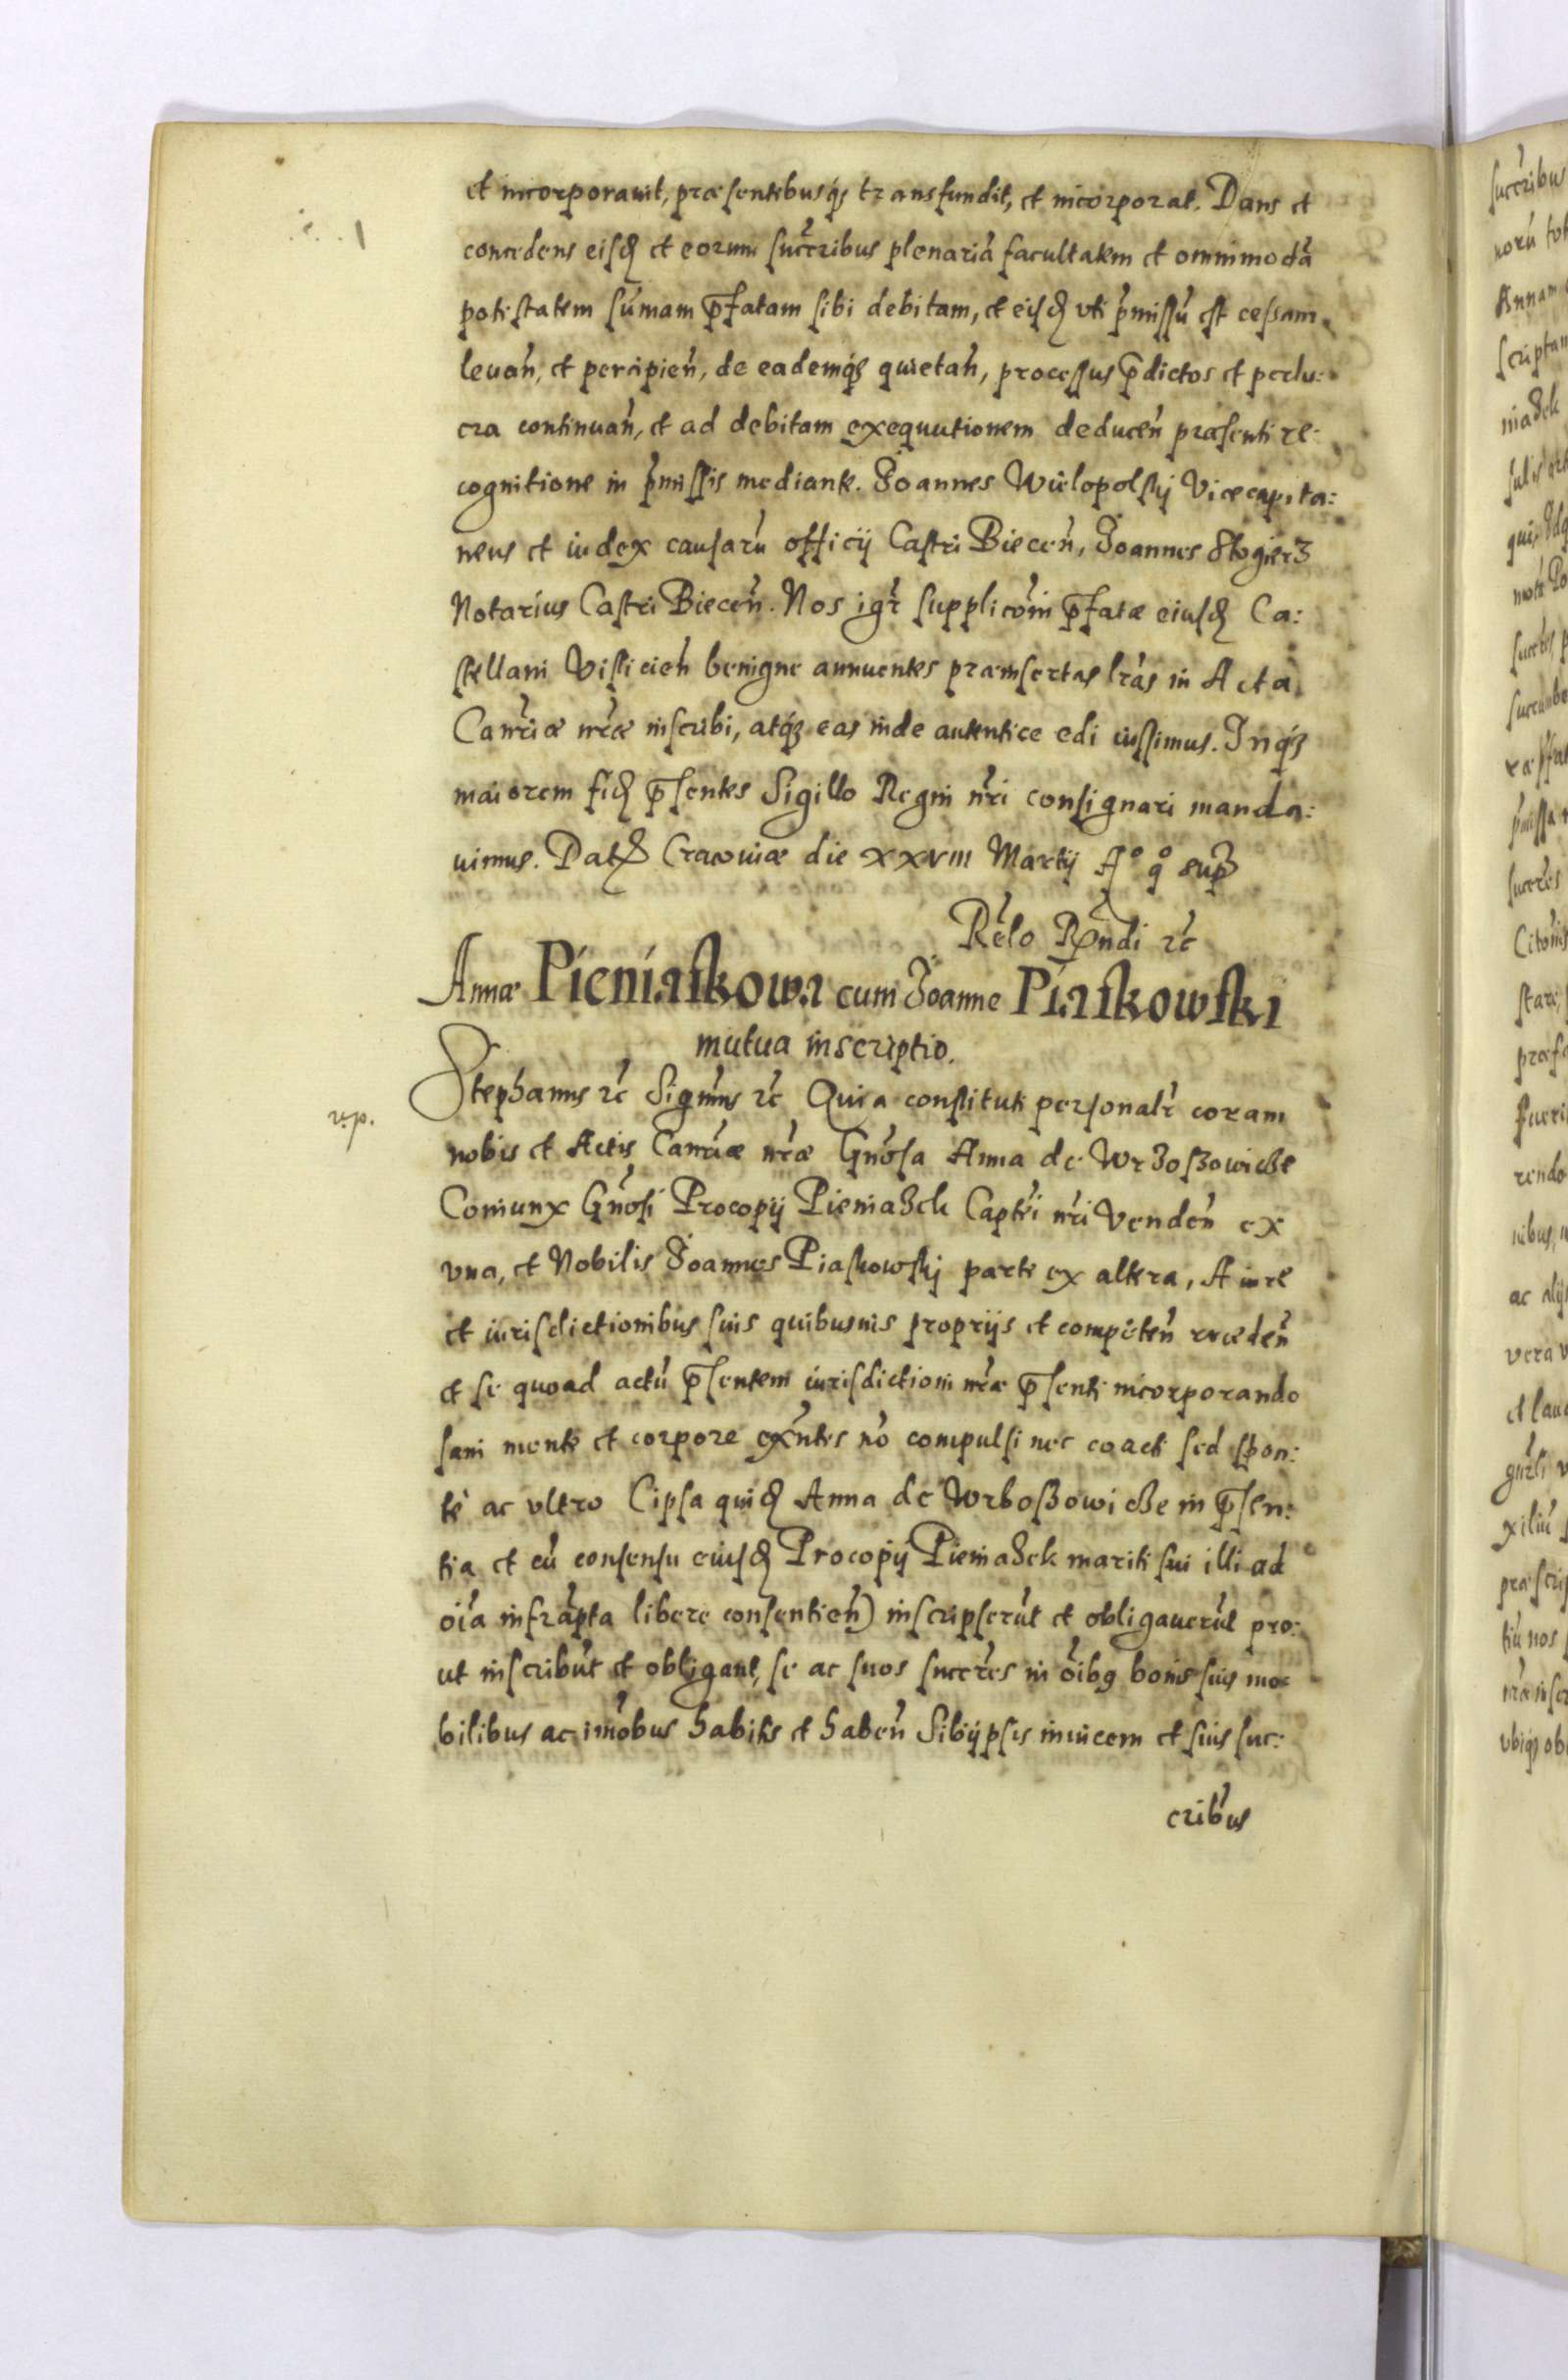 et incorporauit, præsentibusq₃ transfundit, et incorporat. Dans et
concedens eisđ et eorum succ̃ribus plenariã facultatem et omnimodã
potestatem sum̃am p̄fatam sibi debitam, et eisđ vti p̃missũ est cessam
leuan̄, et percipien̄, de eademq₃ quietan̄, processus p̄dictos et perlu:
cra continuan̄, et ad debitam exequutionem deducen̄ præsenti re:
cognitione in p̃missis mediante. Joannes Wielopolskj Vicecapita:
neus et iudex causarũ officij Castri Biecen̄, Joannes Stogierz
Notarius Castri Biecen̄. Nos igr̃ supplicõni p̄fatæ eiusđ Ca:
stellani Vislicien̄ benigne annuentes præinsertas lr̃as in Acta
Canr̃iæ nr̃æ inscribi, atq₃ eas inde autentice edi iussimus. Inq₃
maiorem fiđ p̄sentes Sigillo Regni nr̃i consignari manda:
uimus. Datꝭ Cracouiæ die xxviii Martij Aº qº sup̃
Rel̃o Rp̃ndi rc̃
Annæ Pieniaskowa cum Joanne Piaskowski
mutua inscriptio.
Stephanus rc̃ Sigñm̃s rc̃ Quia constituti personalr̃ coram
nobis et Actis Canr̃iæ nr̃æ Gnõsa Anna de Wrzoszowicze
Coniunx Gnõsi Procopij Pieniazek Captẽi nr̃i Venden̄ ex
vna, et Nobilis Joannes Piaskowskj parte ex altera, A iure
et iurisdictionibus suis quibusuis proprijs et compẽten̄ rœceden̄
et se quoad actũ p̄sentem iurisdictioni nr̃æ p̄senti incorporando
sani mente et corpore exñtes nõ compulsi nec coacti sed spon:
te ac vltro (ipsa quiđ Anna de Wrboszowicze in p̄sen:
tia et cũ consensu eiusđ Procopij Pieniazek mariti sui illi ad
oĩa infrãpta libere consentien̄) inscripserũt et obligauerũt pro:
ut inscribũt et obligant, se ac suos succr̃es in õibꝯ bonis suis mo:
bilibus ac im̃obus habitis et haben̄ Sibijpsis inuicem et suis suc:
crib̃us